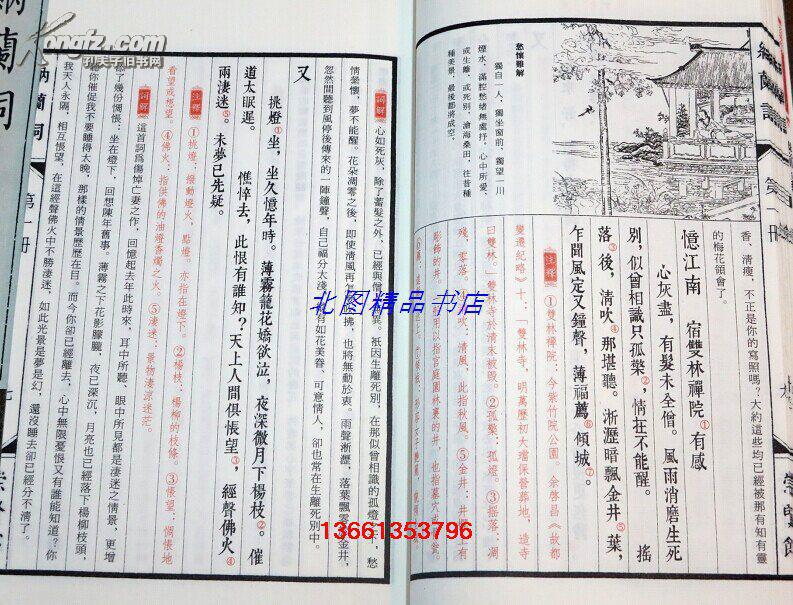 納蘭詞
第一冊
愁懷難解
獨自一人，獨坐窗前，獨望一川
煙水，滿腔愁緒無處抒，心中所愛，
或生離，或死別，滄海桑田，往昔種
種美景，最後都將成空。
香、清瘦，不正是你的寫照嗎？大約這些均已經被那有知有靈
的梅花領會了。
憶江南　宿雙林禪院①有感
心灰盡，有髮未全僧。風雨消磨生死
別，似曾相識只孤檠②，情在不能醒。　搖
落③後，清吹④那堪聽。淅瀝暗飄金井⑤葉，
乍聞風定又鐘聲，薄福薦⑥傾城⑦。
注釋
①雙林禪院：今紫竹院公園。余啓昌《故都
變遷紀略》十：「雙林寺，明萬歷初大璫保營葬地，造寺
曰雙林。」雙林寺於清末被毀。②孤檠：孤燈。③搖落：凋
殘，零落。④清吹：清風，此指秋風。⑤金井：井上有
詞解
心如死灰，除了蓄髮之外，已經與僧人
衹因生離死別，在那似曾相識的孤燈之下，愁
情縈懷，夢不能醒。花朵凋零之後，即使清風再怎
拂，也將無動於衷。雨聲淅瀝，落葉飄零
金井，
忽然間聽到風停後傳來的一陣鐘聲，自己福分太淺，
有如花美眷、可意情人，卻也常在生離死別中。
又
挑燈①坐，坐久憶年時。薄霧籠花嬌欲泣，夜深微月下楊枝②。催
道太眠遲。　憔悴去，此恨有誰知？天上人間俱悵望③，經聲佛火④
兩淒迷⑤。未夢已先疑。
注釋
①挑燈：撥動燈火，點燈。亦指在燈下。②楊枝：楊柳的枝條。③悵望：惆悵地
看望或想望。④佛火：指供佛的油燈香燭之火。⑤淒迷：景物淒涼迷茫。
詞解
這首詞爲傷悼亡妻之作，回憶起去年此時來，耳中所聽、眼中所見都是淒迷之情景，更增
添了幾份惆悵：坐在燈下，回想陳年舊事。薄霧之下花影朦朧，夜已深沉，月亮也已經落下楊柳枝頭，
你催促我不要睡得太晚，那樣的情景歷歷在目。而今你卻已經離去，心中無限憂恨又有誰能知道？你
我天人永隔，相互悵望，在這經聲佛火中不勝淒迷，如此光景是夢是幻，還沒睡去卻已經分不清了。
納蘭詞
第一冊
七
kongfz.com
孔夫子旧书网
北图精品书店
13661353796